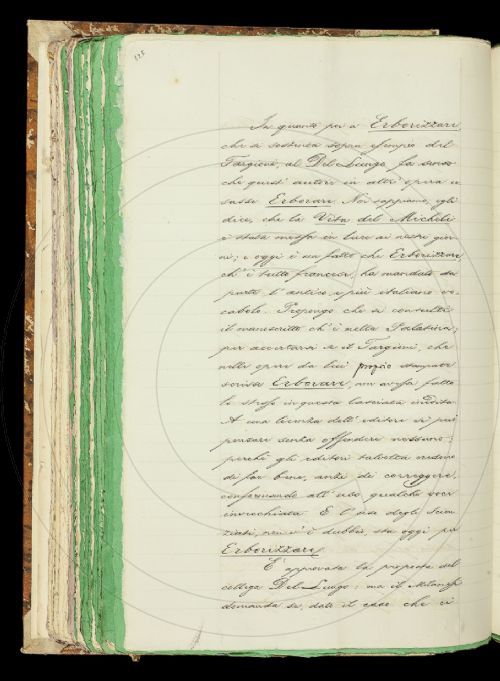 128
In quanto poi a Erborizzare,
che si sostenea sopra esempio del
Targioni, al Del Lungo fa senso
che quest' autore in altr' opera u-
sasse Erborare. Noi sappiamo, egli
dice, che la Vita del Micheli
è stata messa in luce ai nostri gior-
ni; e oggi è un fatto che Erborizzare,
ch' è tutto francese, ha mandato da
parte l' antico e più italiano vo-
cabolo. Propongo che si consulti
il manoscritto ch' è nella Palatina,
per accertarsi se il Targioni, che
nelle opere da lui proprio stampate
scrisse Erborare, non avesse fatto
lo stesso in questa lasciata inedita.
A una licenza dell' editore si può
pensare senza offendere nessuno;
perché gli editori talvolta credono
di far bene, anzi di correggere,
conformando all' uso qualche voce
invecchiata. E l' uso degli scien-
ziati, non v' è dubbio, sta oggi per
Erborizzare.
È approvata la proposta del
collega Del Lungo; ma il Milanesi
domanda se, dato il caso che ci